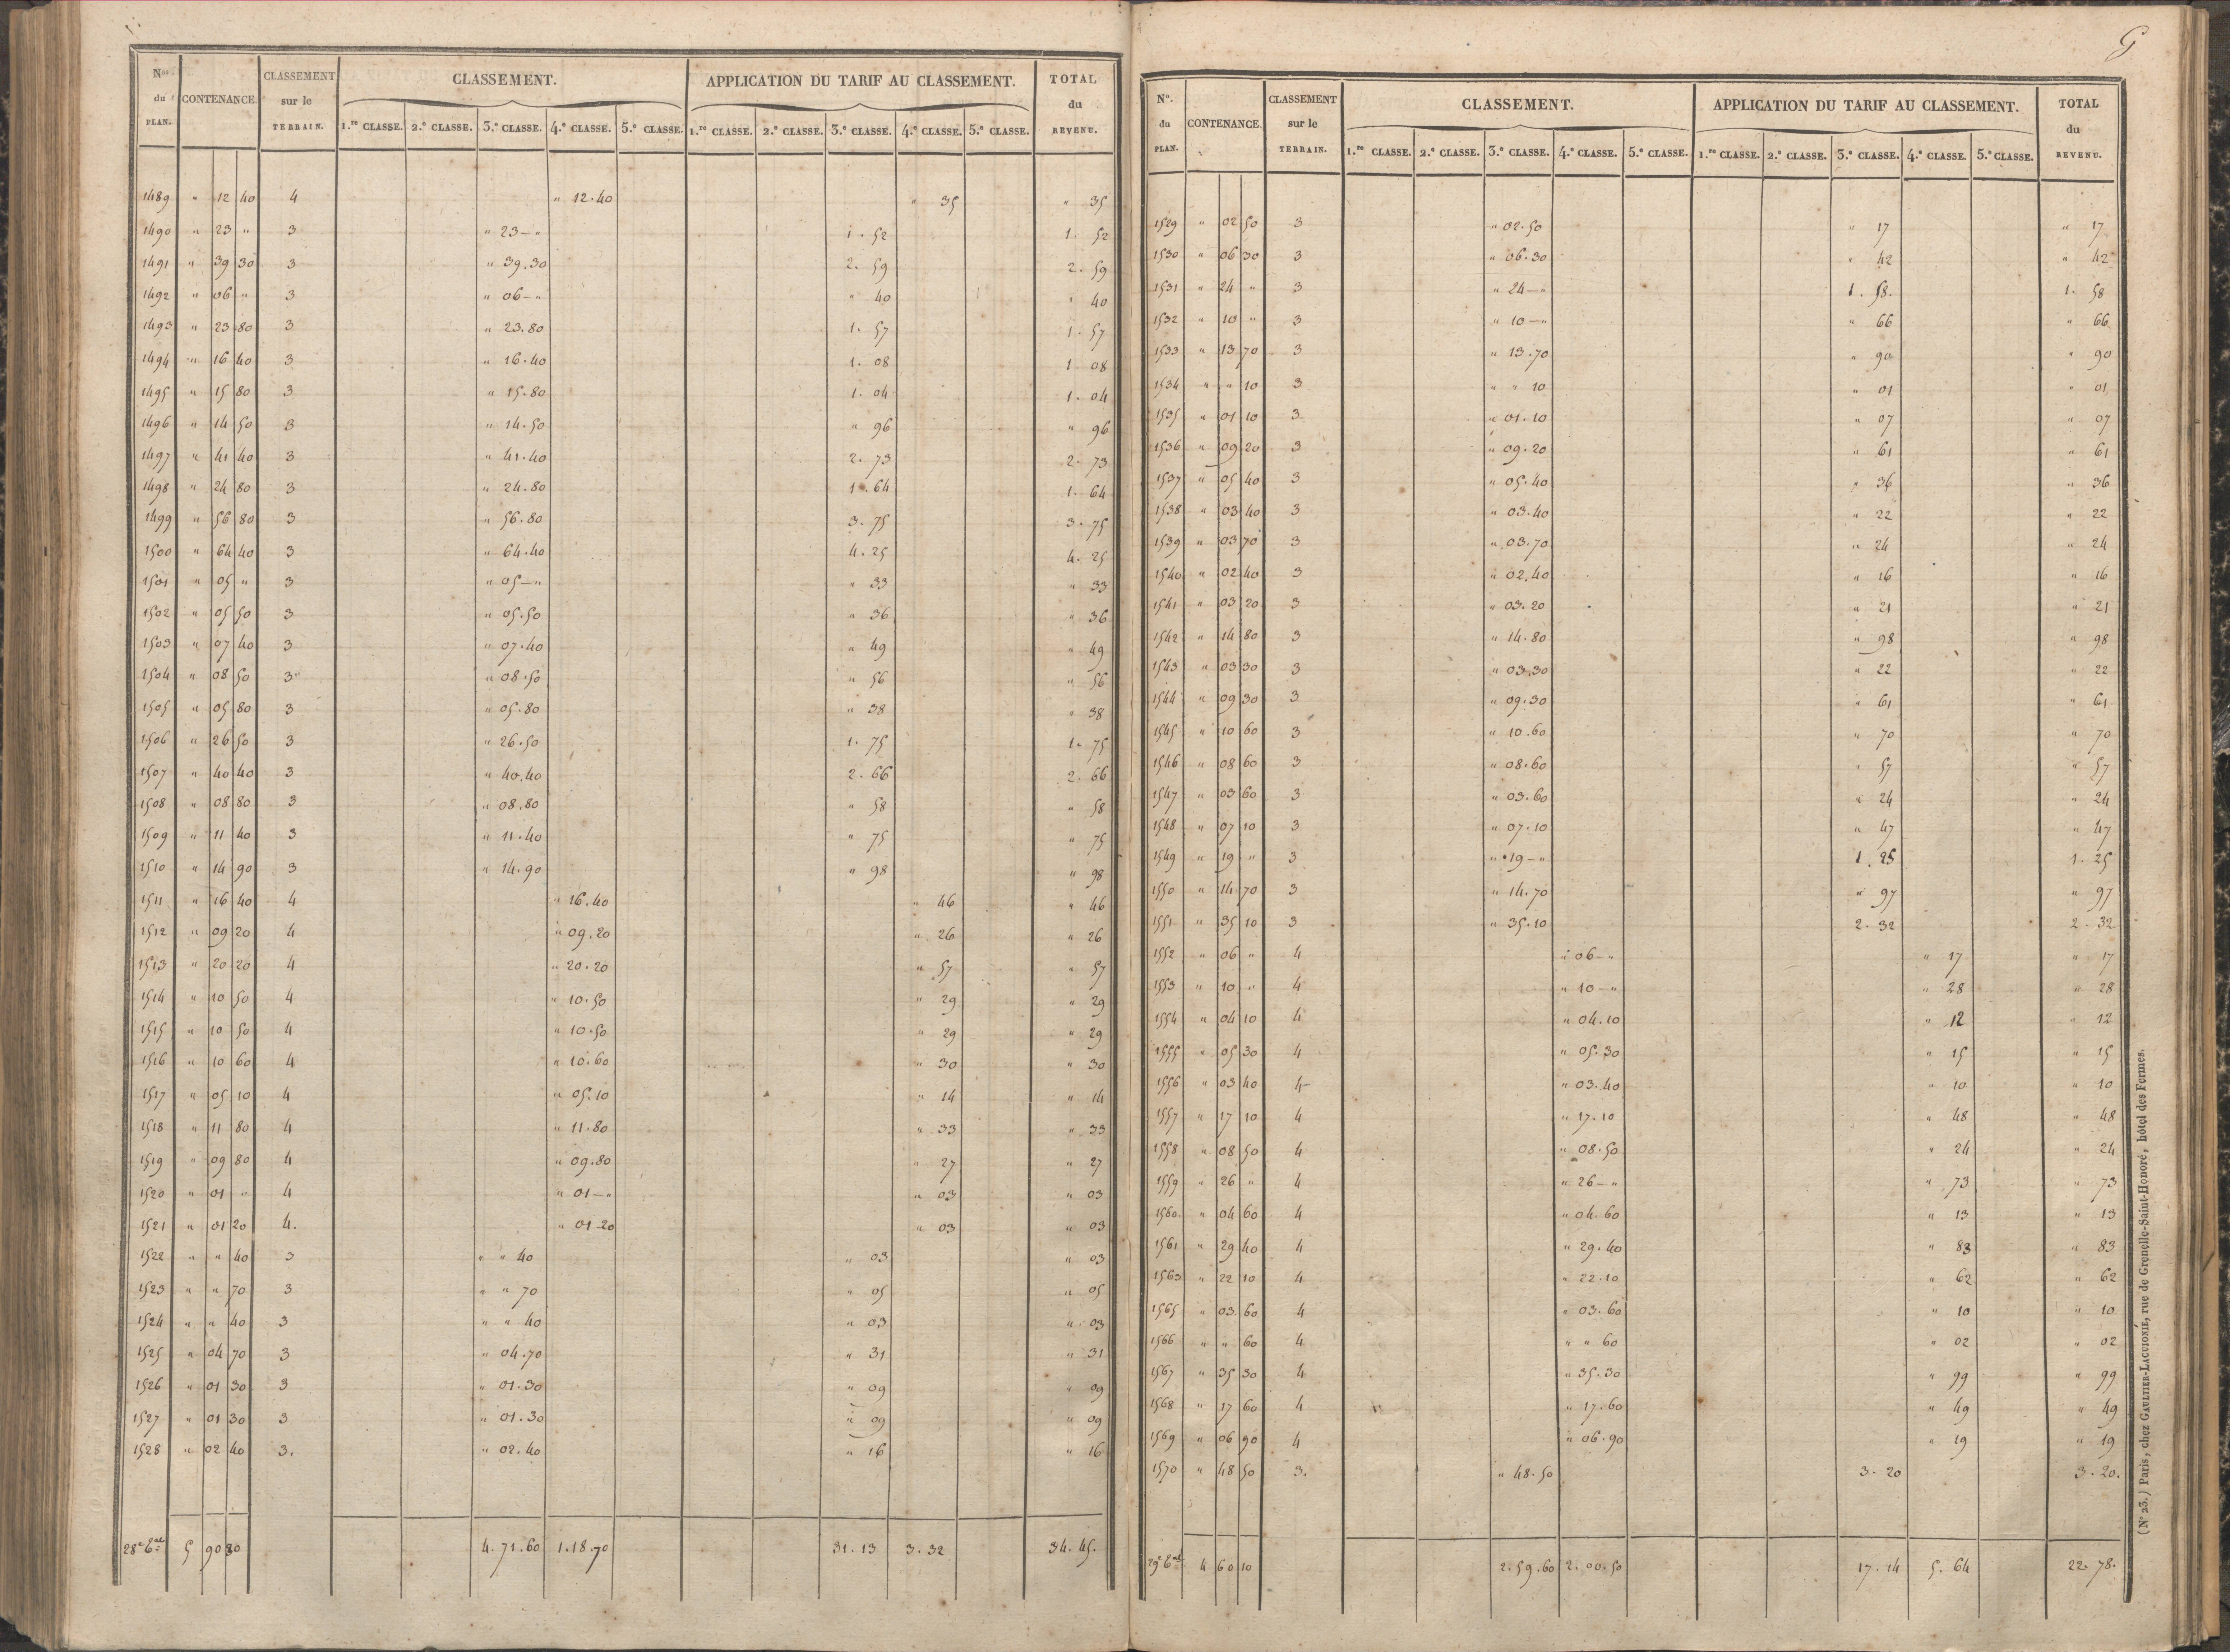 N.os du PLAN. CONTENANCE. CLASSEMENT sur le TERRAIN. CLASSEMENT. APPLICATION DU TARIF AU CLASSEMENT. TOTAL du REVENU.
1.re CLASSE. 2.e CLASSE. 3.e CLASSE. 4.e CLASSE. 5.e CLASSE. 1.re CLASSE. 2.e CLASSE. 3.e CLASSE. 4.e CLASSE. 5.e CLASSE.
1489 " 12 40 4 " 12.40 " 35 " 35
1490 " 23 " 3 " 23-" 1. 52 1. 52
1491 " 39 30 3 " 39.30 2. 59 2. 59
1492 " 06 " 3 " 06-" " 40 " 40
1493 " 23 80 3 " 23.80 1. 57 1. 57
1494 " 16 40 3 " 16.40 1. 08 1. 08
1495 " 15 80 3 " 15.80 1. 04 1. 04
1496 " 14 50 3 " 14.50 " 96 " 96
1497 " 41 40 3 " 41.40 2. 73 2. 73
1498 " 24 80 3 " 24.80 1. 64 1. 64
1499 " 56 80 3 " 56.80 3. 75 3. 75
1500 " 64 40 3 " 64.40 4. 25 4. 25
1501 " 05 " 3 " 05-" " 33 " 33
1502 " 05 50 3 " 05.50 " 36 " 36
1503 " 07 40 3 " 07.40 " 49 " 49
1504 " 08 50 3 " 08.50 " 56 " 56
1505 " 05 80 3 " 05.80 " 38 " 38
1506 " 26 50 3 " 26.50 1. 75 1. 75
1507 " 40 40 3 " 40.40 2. 66 2. 66
1508 " 08 80 3 " 08.80 " 58 " 58
1509 " 11 40 3 " 11.40 " 75 " 75
1510 " 14 90 3 " 14.90 " 98 " 98
1511 " 16 40 4 " 16.40 " 46 " 46
1512 " 09 20 4 " 09.20 " 26 " 26
1513 " 20 20 4 " 20.20 " 57 " 57
1514 " 10 50 4 " 10.50 " 29 " 29
1515 " 10 50 4 " 10.50 " 29 " 29
1516 " 10 60 4 " 10.60 " 30 " 30
1517 " 05 10 4 " 05.10 " 14 " 14
1518 " 11 80 4 " 11.80 " 33 " 33
1519 " 09 80 4 " 09.80 " 27 " 27
1520 " 01 " 4 " 01-" " 03 " 03
1521 " 01 20 4. " 01.20 " 03 " 03
1522 " " 40 3 " " 40 " 03 " 03
1523 " " 70 3 " " 70 " 05 " 05
1524 " " 40 3 " " 40 " 03 " 03
1525 " 04 70 3 " 04.70 " 31 " 31
1526 " 01 30 3 " 01.30 " 09 " 09
1527 " 01 30 3 " 01.30 " 09 " 09
1528 " 02 40 3. " 02.40 " 16 " 16
28e 6al 5 90 30 4.71.60 1.18.70 31.13 3.32 34.45.
G
N.o du PLAN. CONTENANCE. CLASSEMENT sur le TERRAIN. CLASSEMENT. APPLICATION DU TARIF AU CLASSEMENT. TOTAL du REVENU.
1.re CLASSE. 2.e CLASSE. 3.e CLASSE. 4.e CLASSE. 5.e CLASSE. 1.re CLASSE. 2.e CLASSE. 3.e CLASSE. 4.e CLASSE. 5.e CLASSE.
1529 " 02 50 3 " 02.50 " 17 " 17
1530 " 06 30 3 " 06.30 " 42 " 42
1531 " 24 " 3 " 24-" 1. 58. 1. 58
1532 " 10 " 3 " 10-" " 66 " 66
1533 " 13 70 3 " 13.70 " 90 " 90
1534 " " 10 3 " " 10 " 01 " 01
1535 " 01 10 3 " 01.10 " 07 " 07
1536 " 09 20 3 " 09.20 " 61 " 61
1537 " 05 40 3 " 05.40 " 36 " 36
1538 " 03 40 3 " 03.40 " 22 " 22
1539 " 03 70 3 " 03.70 " 24 " 24
1540 " 02 40 3 " 02.40 " 16 " 16
1541 " 03 20 3 " 03.20 " 21 " 21
1542 " 14 80 3 " 14.80 " 98 " 98
1543 " 03 30 3 " 03.30 " 22 " 22
1544 " 09 30 3 " 09.30 " 61 " 61
1545 " 10 60 3 " 10.60 " 70 " 70
1546 " 08 60 3 " 08.60 " 57 " 57
1547 " 03 60 3 " 03.60 " 24 " 24
1548 " 07 10 3 " 07.10 " 47 " 47
1549 " 19 " 3 " 19-" 1. 25 1. 25
1550 " 14 70 3 " 14.70 " 97 " 97
1551 " 35 10 3 " 35.10 2. 32 2. 32
1552 " 06 " 4 " 06-" " 17 " 17
1553 " 10 " 4 " 10-" " 28 " 28
1554 " 04 10 4 " 04.10 " 12 " 12
1555 " 05 30 4 " 05.30 " 15 " 15
1556 " 03 40 4 " 03.40 " 10 " 10
1557 " 17 10 4 " 17.10 " 48 " 48
1558 " 08 50 4 " 08.50 " 24 " 24
1559 " 26 " 4 " 26-" " 73 " 73
1560 " 04 60 4 " 04.60 " 13 " 13
1561 " 29 40 4 " 29.40 " 83 " 83
1563 " 22 10 4 " 22.10 " 62 " 62
1565 " 03 60 4 " 03.60 " 10 " 10
1566 " " 60 4 " " 60 " 02 " 02
1567 " 35 30 4 " 35.30 " 99 " 99
1568 " 17 60 4 " 17.60 " 49 " 49
1569 " 06 90 4 " 06.90 " 19 " 19
1570 " 48 50 3. " 48.50 3. 20 3. 20.
29e 6al 4 60 10 2.59.60 2.00.50 17.14 5.64 22.78.
(No 23.) Paris, chez GAULTIER-LAGUIONIE, rue de Grenelle-Saint-Honoré, hôtel des Fermes.